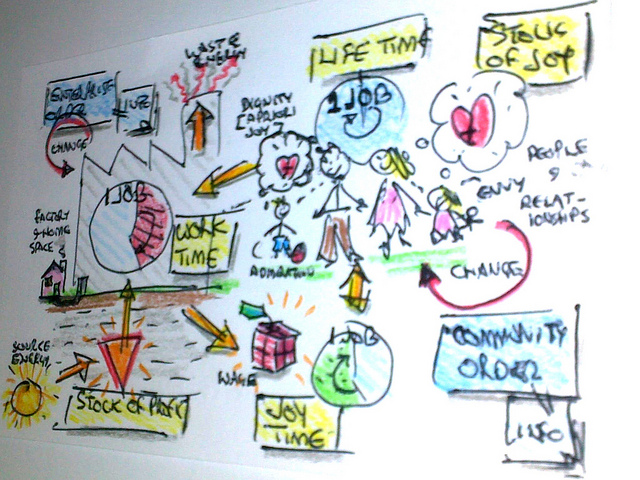 WASTE
ENERGY
LIFE TIME
STOCK
OF JOY
ORDER
INFO
CHANGE
DIGNITY
JOY
1 JOB
PEOPLE
&
RELAT-
IONSHIPS
ENVY
FACTORY
& HOME
SPACE
1 JOB
WORK
TIME
ADMIRATION
CHANGE
SOURCE
ENERGY
WAGE
1 JOB
COMMUNITY
ORDER
STOCK OF PROFIT
JOY
TIME
INFO